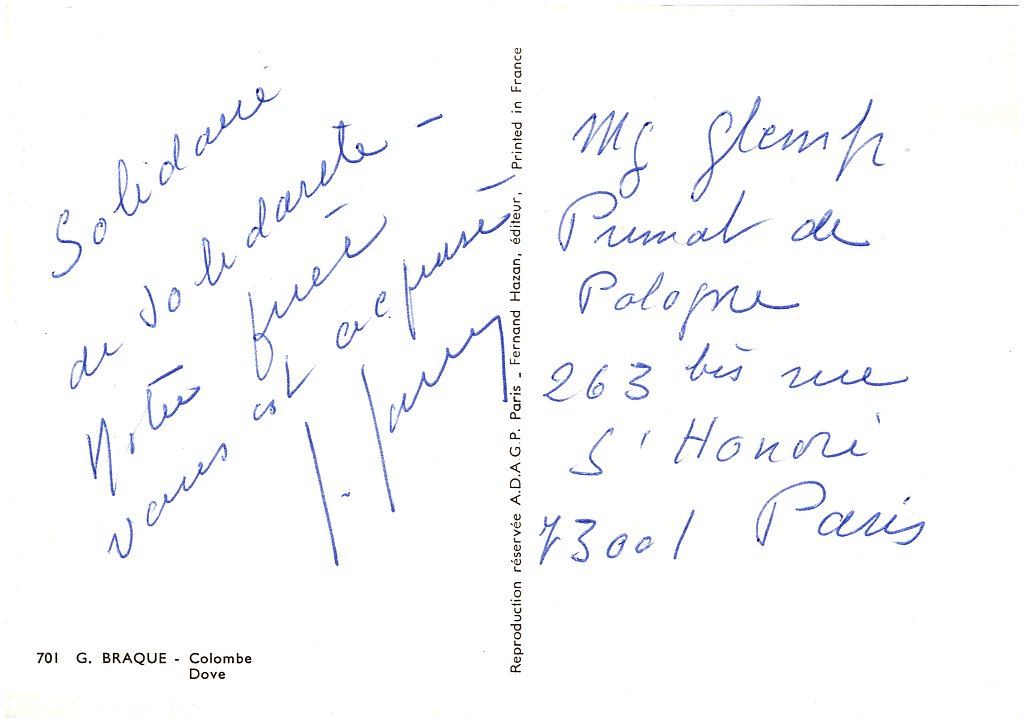 Solidaire
de Solidarité –
Notre prière
vous est acquise –
Mg Glemp
Primat de
Pologne
263 bis rue
St Honoré
73001 Paris
Reproduction réservée A.D.A.G.P. Paris - Fernand Hazan, éditeur, Printed in France
701 G. BRAQUE - Colombe
Dove